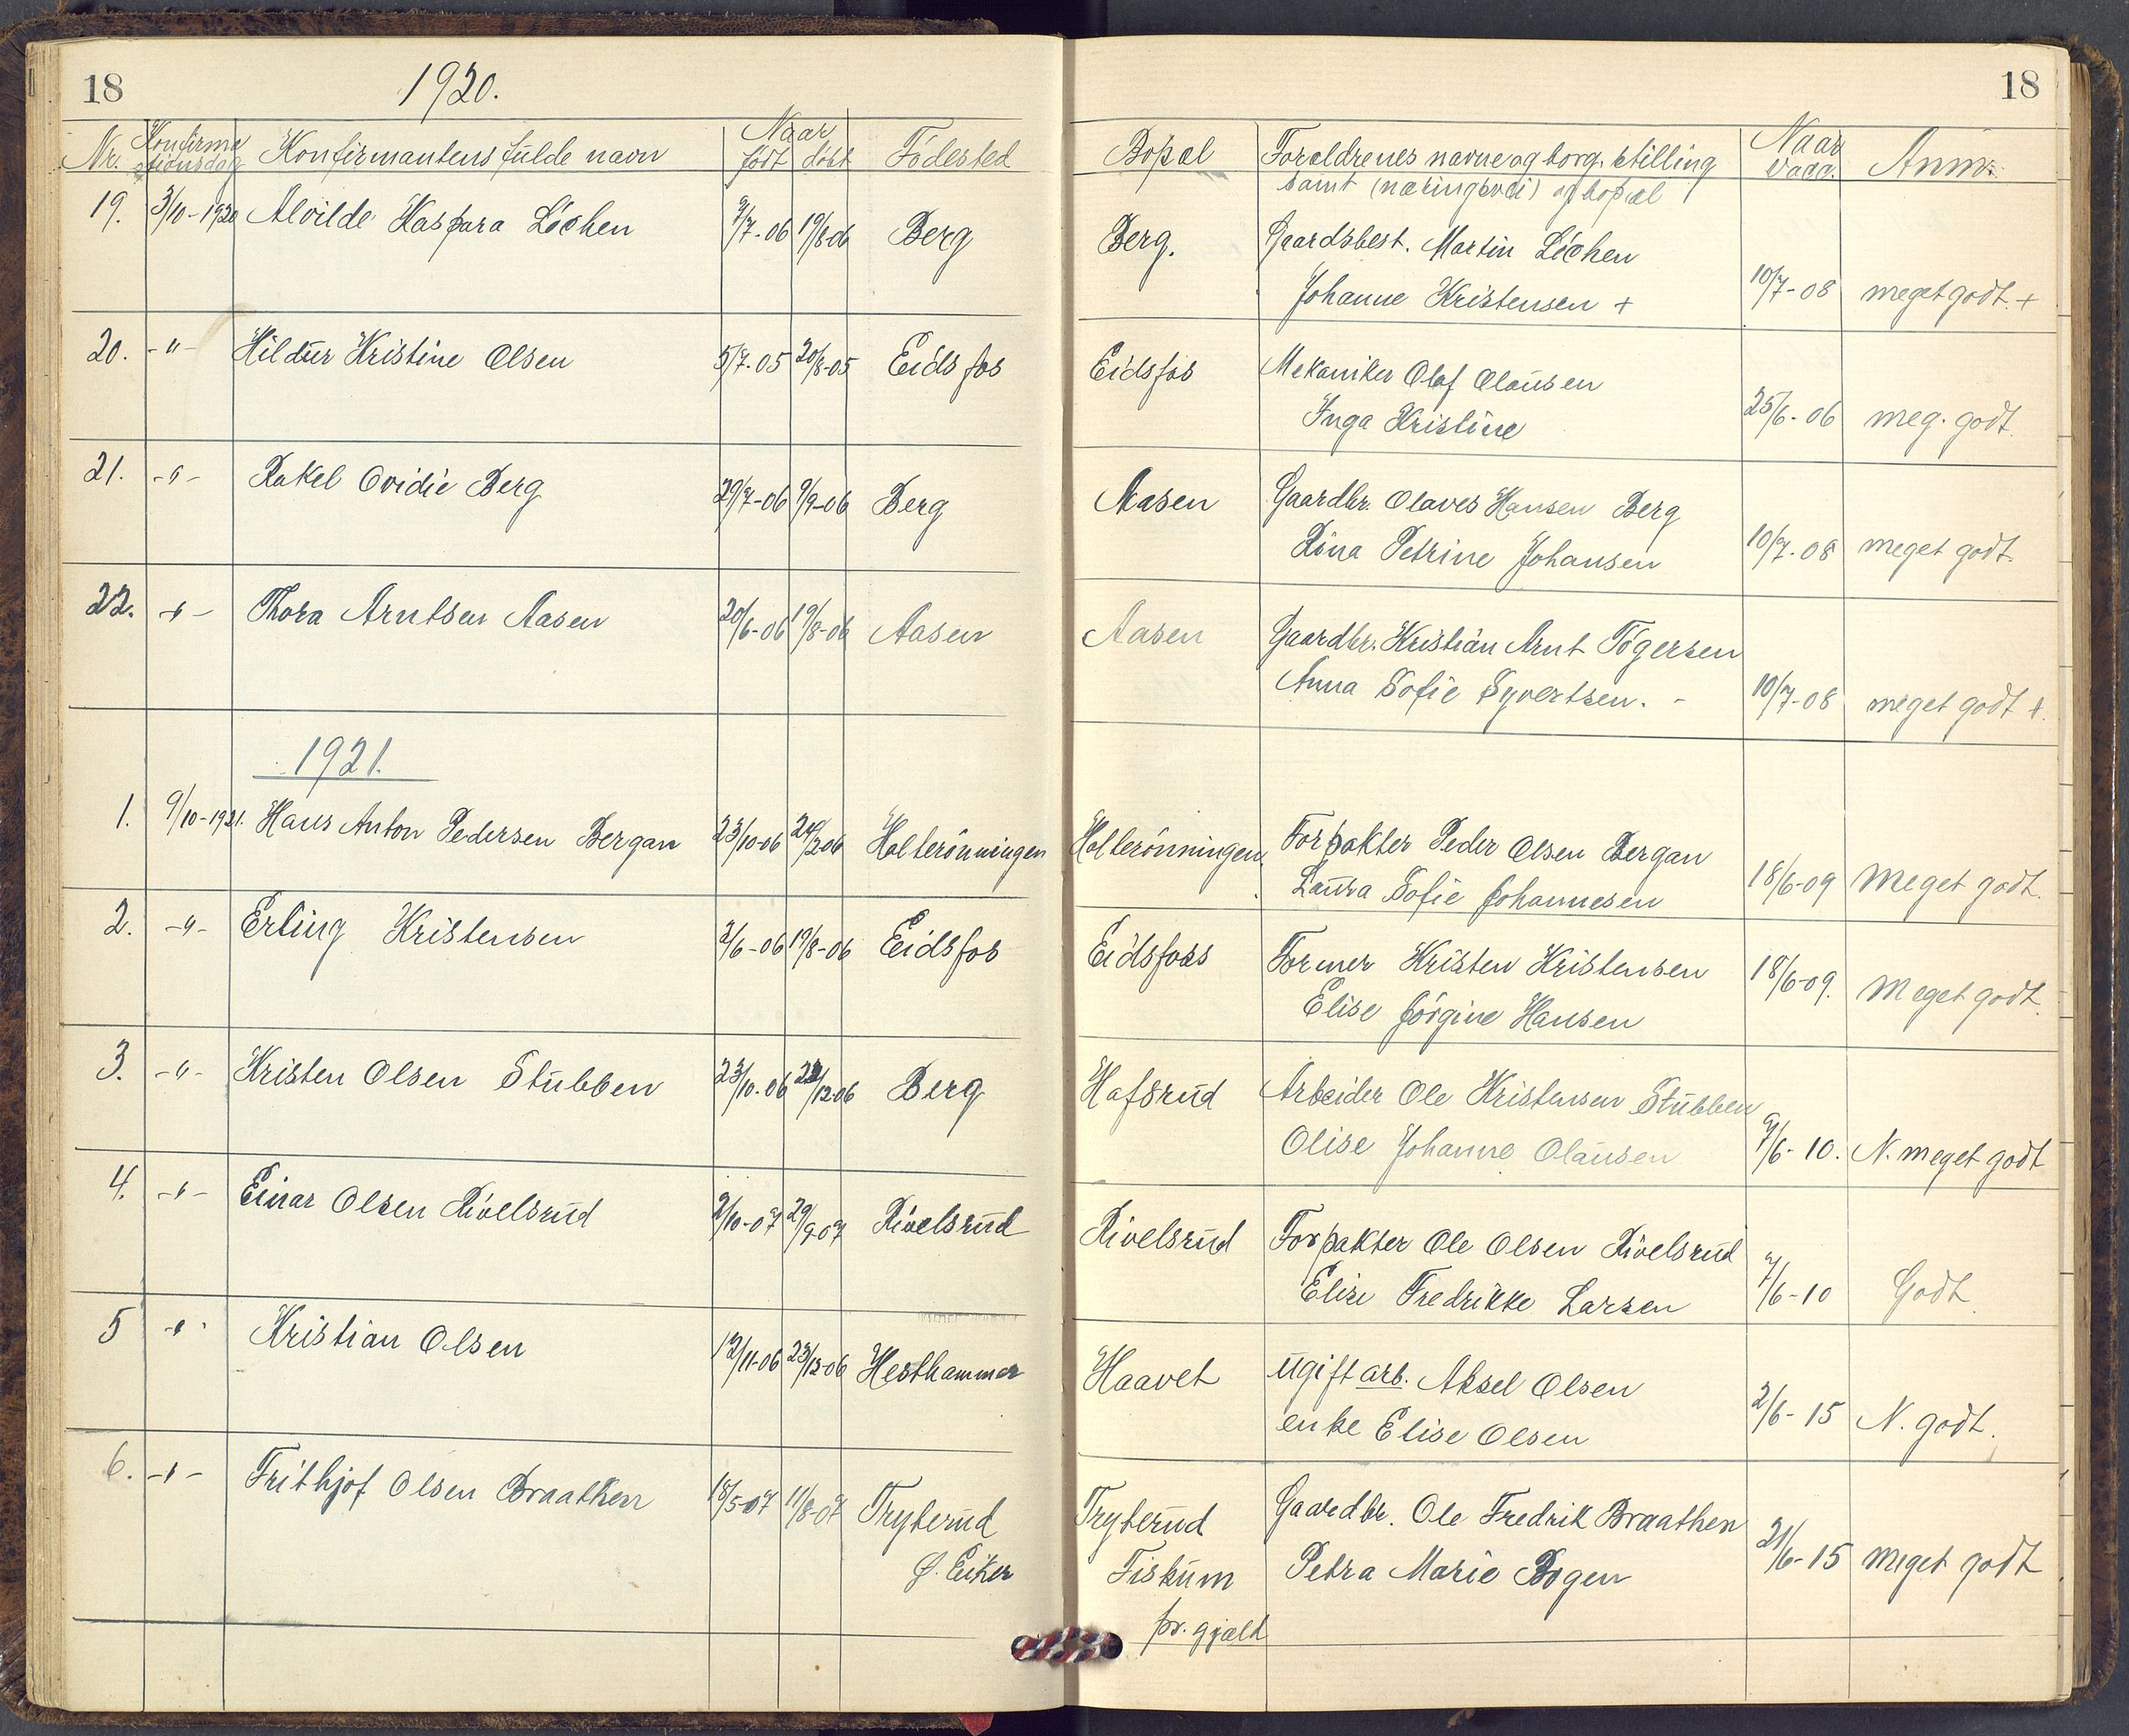 18 1920. 18
Nr. Konfirmationsdag Konfirmantens fulde navn Naar født døbt Fødested Bopæl Forældrenes navne og borg. stilling samt (næringsvei) og bopæl Naar vacc. Anm.
19. 3/10-1920 Alvilde Kaspara Löchen 9/7-06 19/8-06 Berg Berg. Gaardsbest. Martin Löchen
Johanne Kristensen + 10/7-08 meget godt. +
20. -"- Hildur Kristine Olsen 5/7-05 20/8-05 Eidsfos Eidsfos Mekaniker Olaf Olausen
Inga Kristine 25/6-06 meg. godt.
21. -"- Rakel Ovidie Berg 29/7-06 9/9-06 Berg Aasen Gaardbr. Olaves Hansen Berg
Rina Petrine Johansen 10/7-08 meget godt.
22. -"- Thora Arntsen Aasen 20/6-06 19/8-06 Aasen Aasen Gaardbr. Kristian Arnt Tögersen
Anna Sofie Syvertsen. - 10/7-08 meget godt +.
1921.
1. 9/10-1921. Hans Anton Pedersen Bergan 23/10-06 Holterönningen Holterönningen. Forpakter Peder Olsen Bergan
Laura Sofie Johannesen 18/6-09 Meget godt.
2. -"- Erling Kristensen 2/6-06 19/8-06 Eidsfos Eidsfoss Former Kristen Kristensen
Elise Jörgine Hansen 18/6-09. Meget godt.
3. -"- Kristen Olsen Stubben 23/10-06 Berg Hafsrud Arbeider Ole Kristensen Stubben
Olise Johanne Olausen 9/6-10. N. meget godt
4. -"- Einar Olsen Rivelsrud 2/10-07 29/9-07 Rivelsrud Rivelsrud Forpakter Ole Olsen Rivelsrud
Elise Fredrikke Larsen 9/6-10 Godt
5 -"- Kristian Olsen 12/11-06 23/12-06 Hesthammer Haavet ugift arb. Aksel Olsen
enke Elise Olsen 2/6-15 N. godt.
6. -"- Frithjof Olsen Braathen 18/5-07 11/8-07 Tryterud Tryterud Gaardbr. Ole Fredrik Braathen
Ø. Eiker Fiskum Petra Marie Bogen 21/6-15 meget godt
pr. gjæld